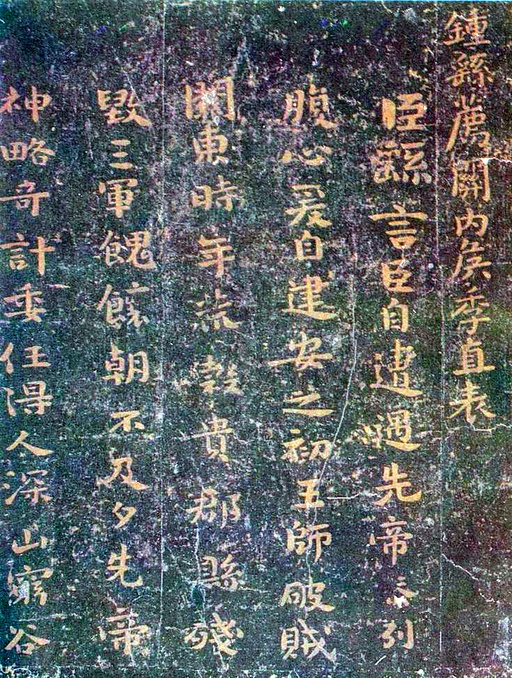 鍾繇薦關内侯季直表
臣繇言臣自遭遇先帝忝列
腹心爰自建安之初王師破賊
關東時年荒榖貴郡縣殘
毀三軍餽饟朝不及夕先帝
神略奇計委任得人深山窮谷